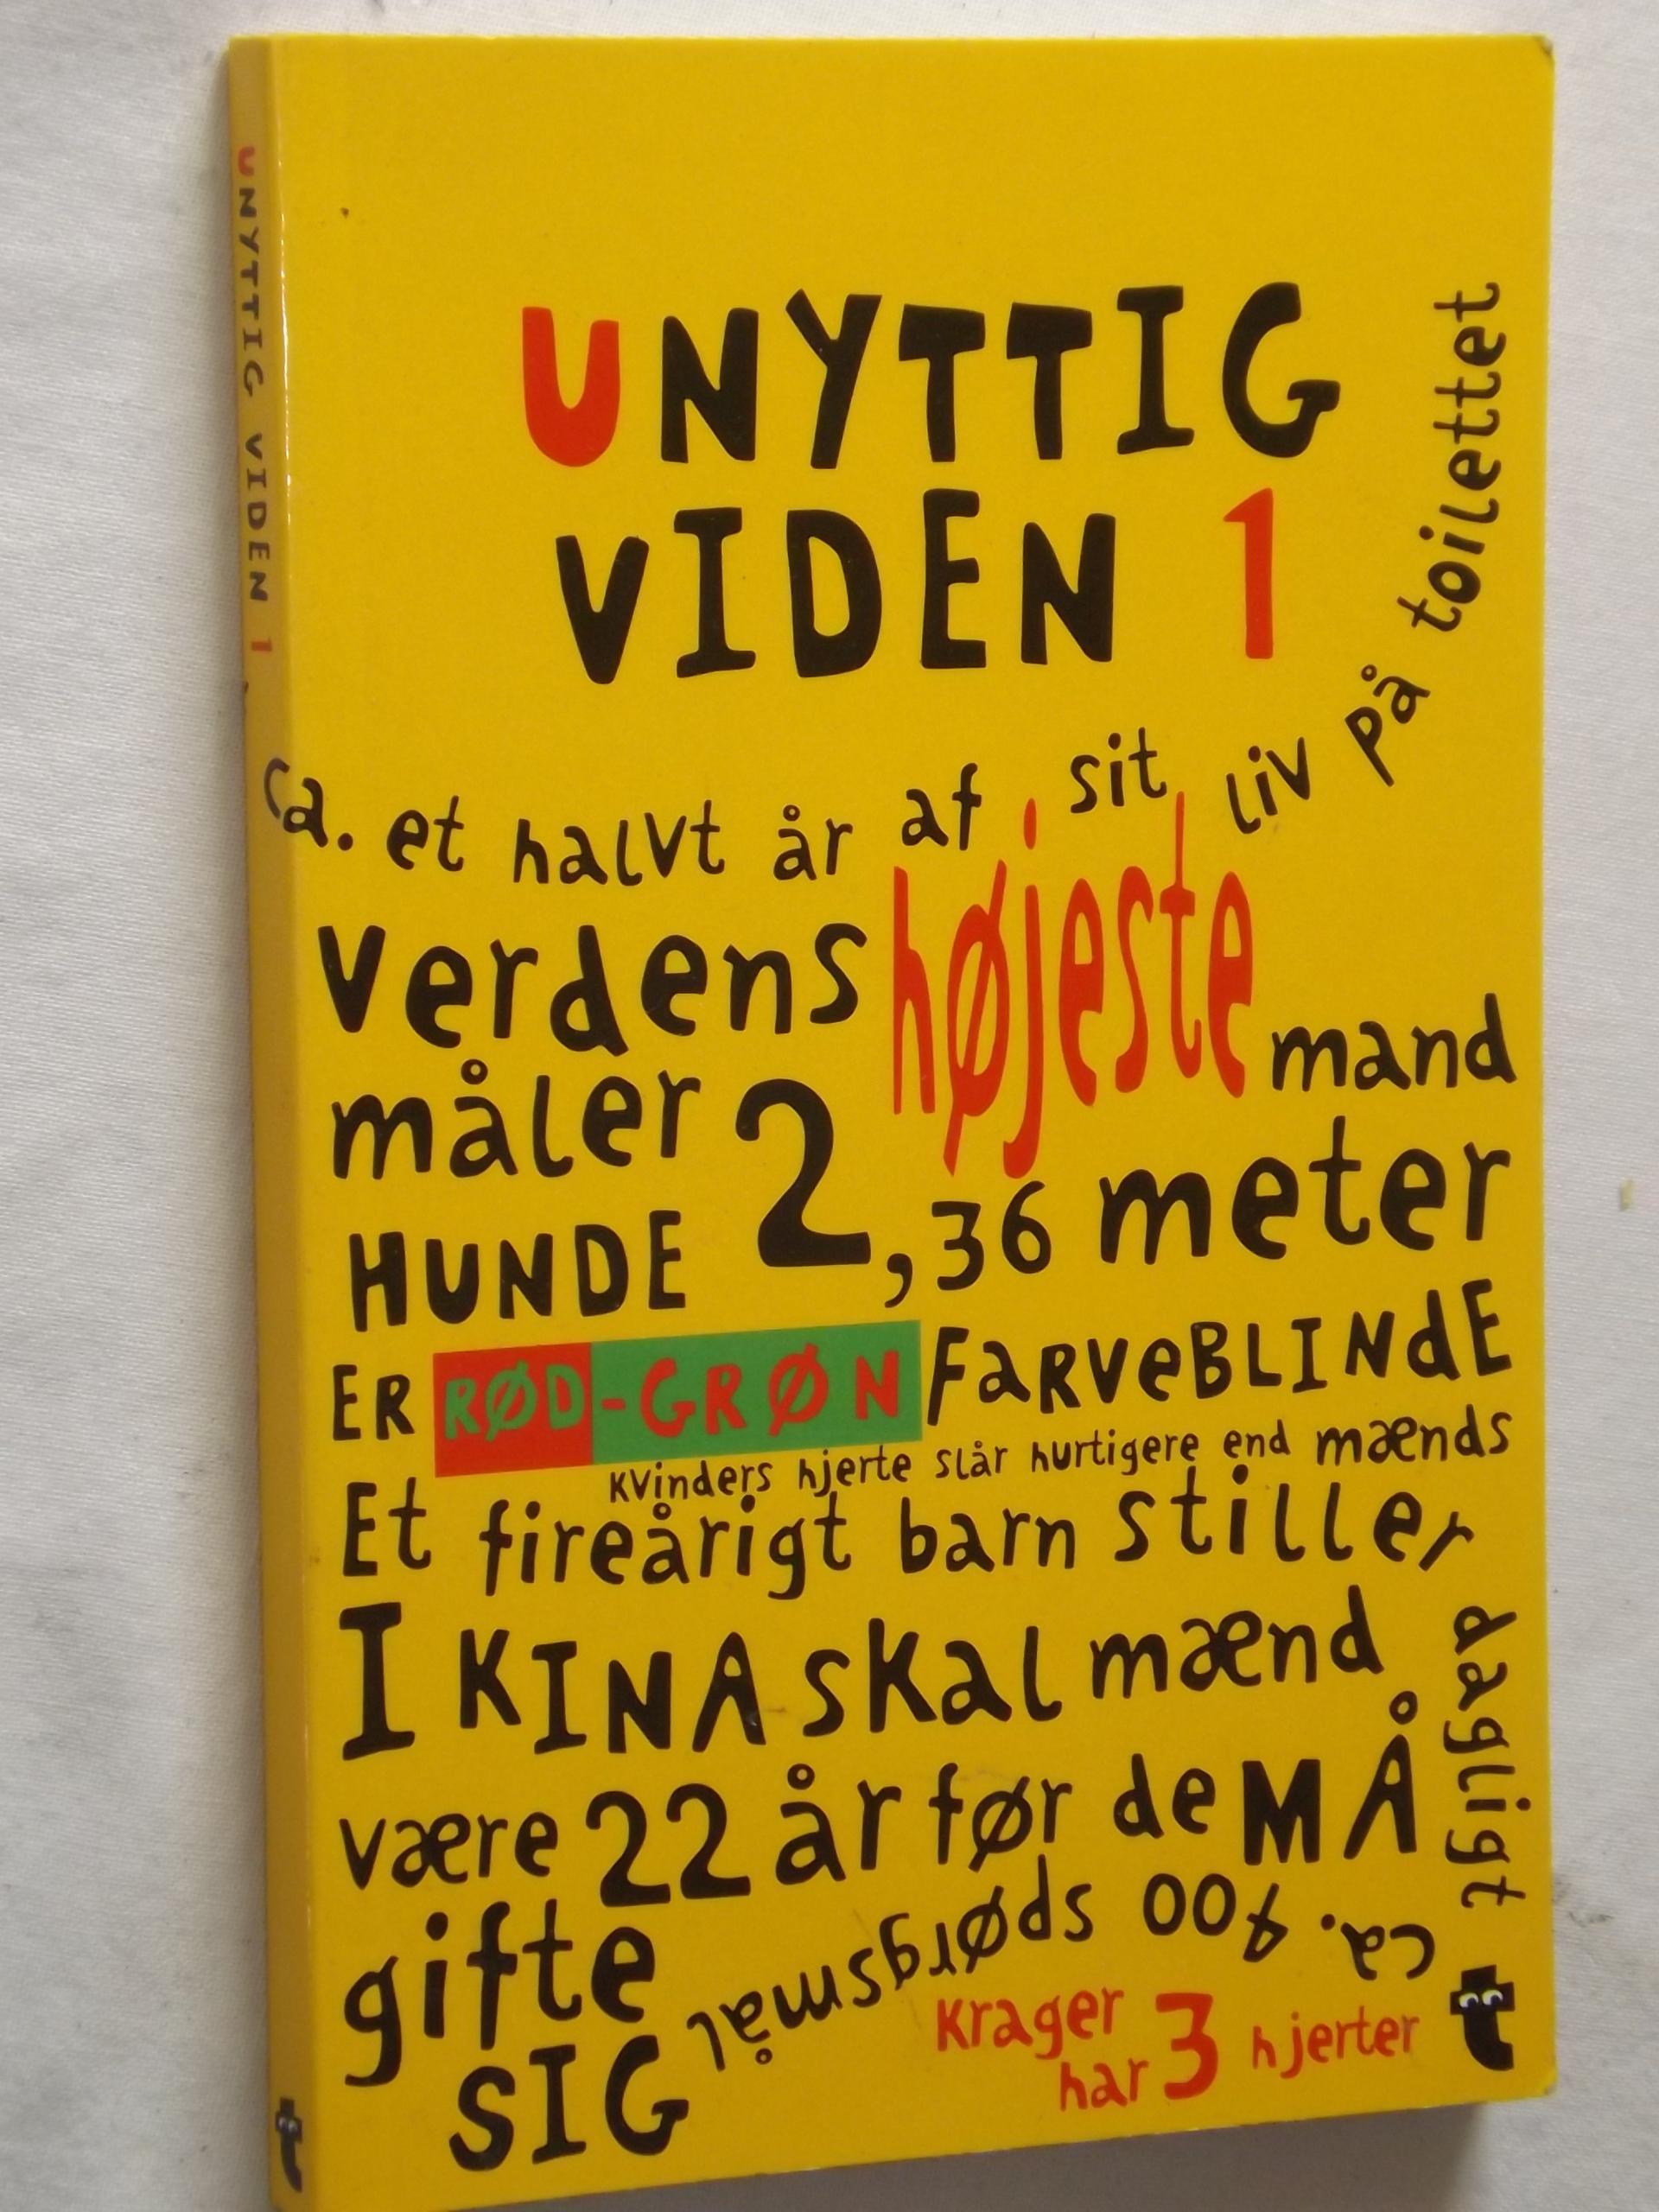 UNYTTIG VIDEN 1
UNYTTIG
VIDEN 1
ca. et halvt år af sit liv på toilettet
verdens højeste mand
måler 2,36 meter
HUNDE
ER RØD-GRØN FARVEBLINDE
Kvinders hjerte slår hurtigere end mænds
Et fireårigt barn stiller dagligt
ca. 400 spørgsmål
I KINA skal mænd
være 22 år før de MÅ
gifte
SIG
Krager
har 3 hjerter
t
t